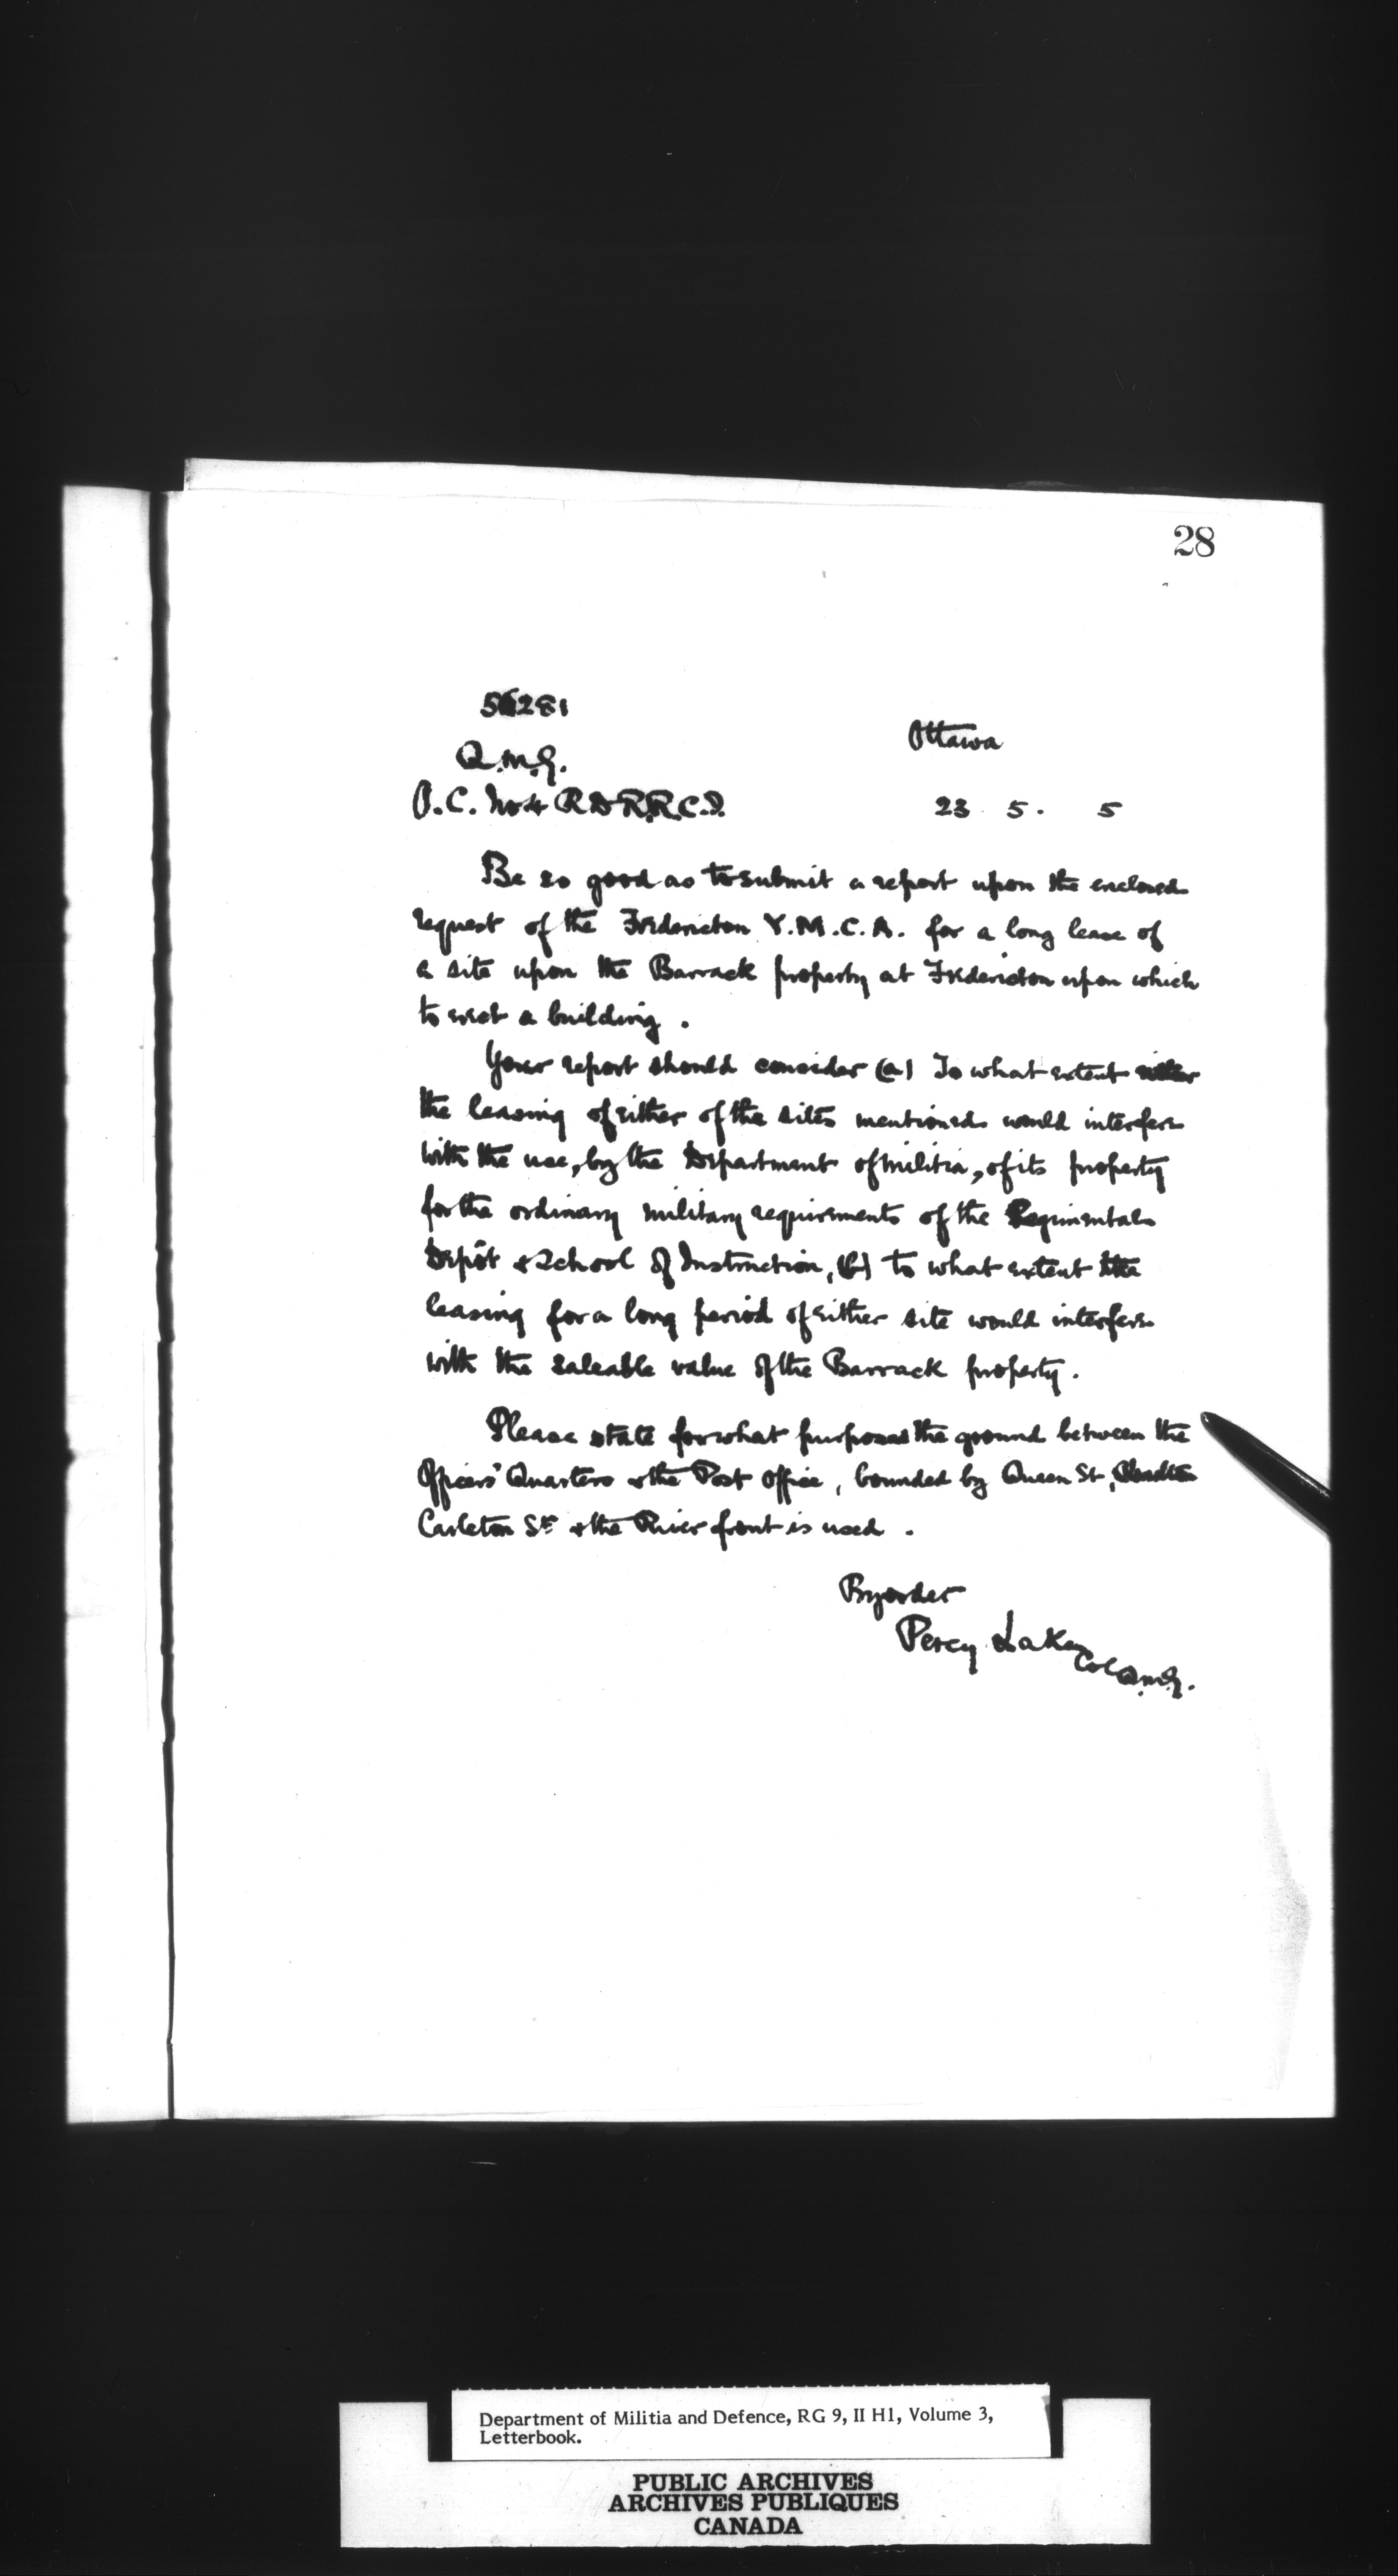 28
56281
Q.M.G.
Ottawa
O.C. No 4 R D R.R.C.I.
23 . 5 . 5
Be so good as to submit a report upon the enclosed
request of the Fredericton Y.M.C.A. for a long lease of
a site upon the Barrack property at Fredericton upon which
to erect a building .
Your report should consider (a) To what extent either
the leasing of either of the sites mentioned would interfere
with the use, by the Department of Militia, of its property
for the ordinary military requirements of the Regimental
Depôt & School of Instruction, (b) to what extent the
leasing for a long period of either site would interfere
with the saleable value of the Barrack property .
Please state for what purposes the ground between the
Officers' Quarters & the Post Office , bounded by Queen St,
Carleton St & the River front is used .
By order
Percy Lake
Col Q.M.G.
Department of Militia and Defence, RG 9, II H1, Volume 3,
Letterbook.
PUBLIC ARCHIVES
ARCHIVES PUBLIQUES
CANADA